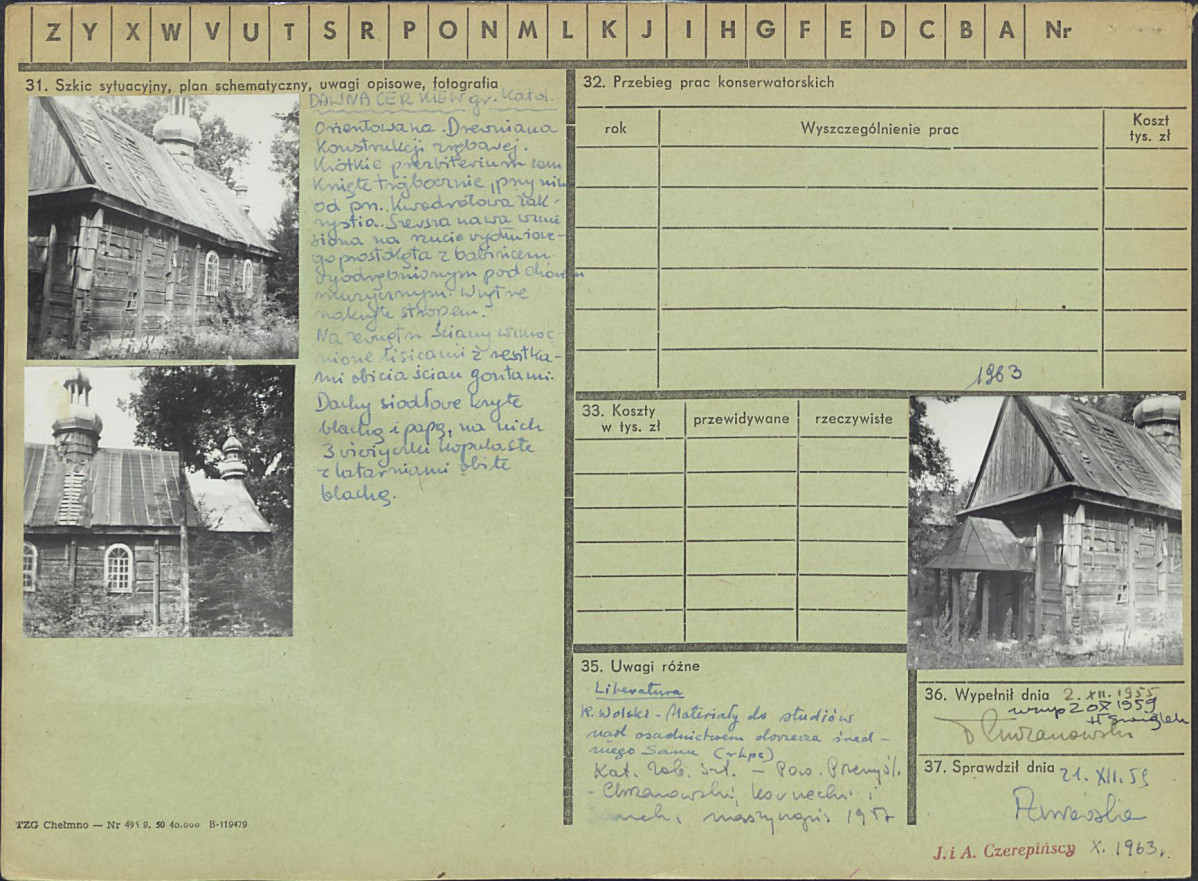 Z Y X W V U T S R P O N M L K J I H G F E D C B A Nr
31. Szkic sytuacyjny, plan schematyczny, uwagi opisowe, fotografia
DAWNA CERKIEW gr. katol.
Orientowana. Drewniana
konstrukcji zrębowej.
Krótkie prezbiterium zam
knięte trójbocznie, przy nim
od pn. kwadratowa zak-
rystia. Szersza nawa wznie
siona na rzucie wydłużone-
go prostokąta z babińcem
wyodrębnionym pod chórem
muzycznym. Wnętrze
nakryte stropem.
Na zewnątrz ściany wzmoc
nione lisicami z resztka-
mi obicia ścian gontami.
Dachy siodłowe kryte
blachą i papą, na nich
3 wieżyczki kopulaste
z latarniami obite
blachą.
TZG Chełmno — Nr 495 9. 50 40.000 B-119479
32. Przebieg prac konserwatorskich
rok
Wyszczególnienie prac
Koszt
tys. zł
1963
33. Koszty
w tys. zł
przewidywane
rzeczywiste
35. Uwagi różne
Literatura
K. Wolski - Materiały do studiów
nad osadnictwem dorzecza śred-
niego Sanu (rkps)
Kat. Zab. Szt. - Pow. Przemyśl.
- Chrzanowski, Kornecki i
maszynopis 1957
36. Wypełnił dnia 2. XII. 1955
1959
T Chrzanowski
37. Sprawdził dnia 21. XII. 59
J. i A. Czerepińscy X. 1963.